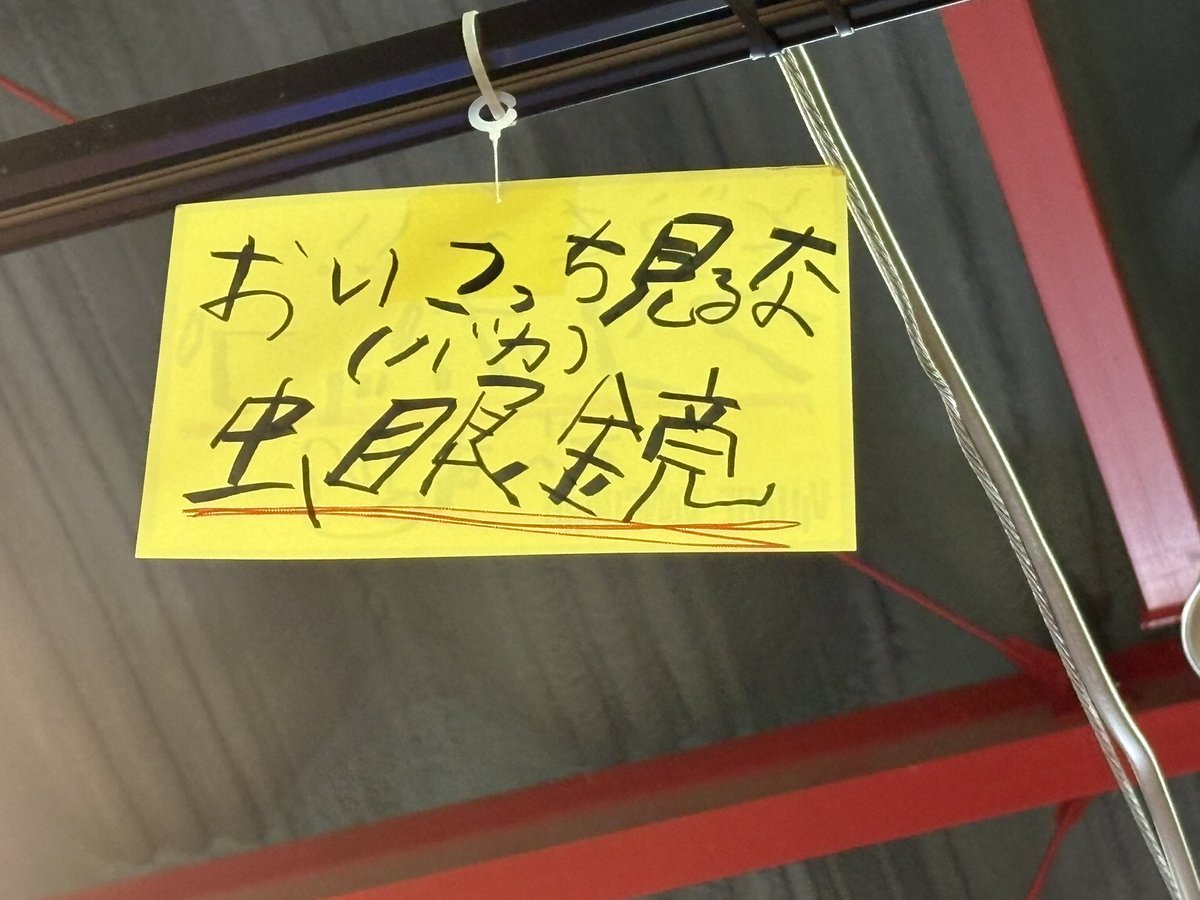 おいこっち見るな
(バカ)
虫眼鏡